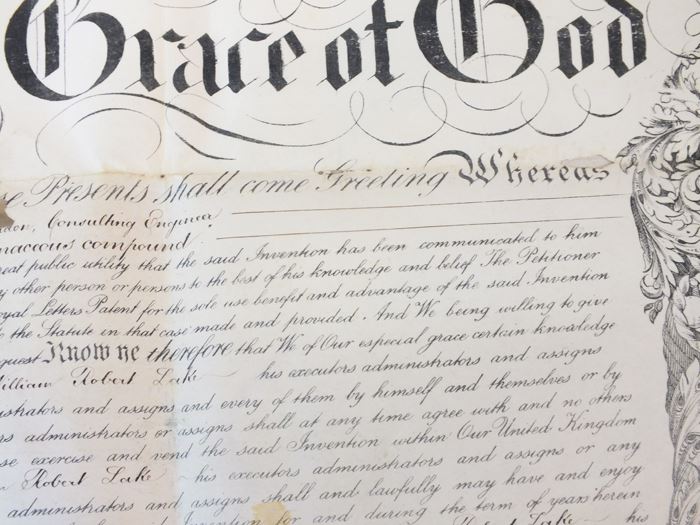 Grace of God
se Presents shall come Greeting Whereas
don, Consulting Engineer
naceous compound
reat public utility that the said Invention has been communicated to him
y other person or persons to the best of his knowledge and belief The Petitioner
oyal Letters Patent for the sole use benefit and advantage of the said Invention
o the Statute in that case made and provided. And We being willing to give
quest Know ye therefore that We of Our especial grace certain knowledge
William Robert Lake his executors administrators and assigns
istrators and assigns and every of them by himself and themselves or by
rs administrators or assigns shall at any time agree with and no others
se exercise and vend the said Invention within Our United Kingdom
Robert Lake his executors administrators and assigns or any
administrators and assigns shall and lawfully may have and enjoy
Invention for and during the term of years herein
Lake his